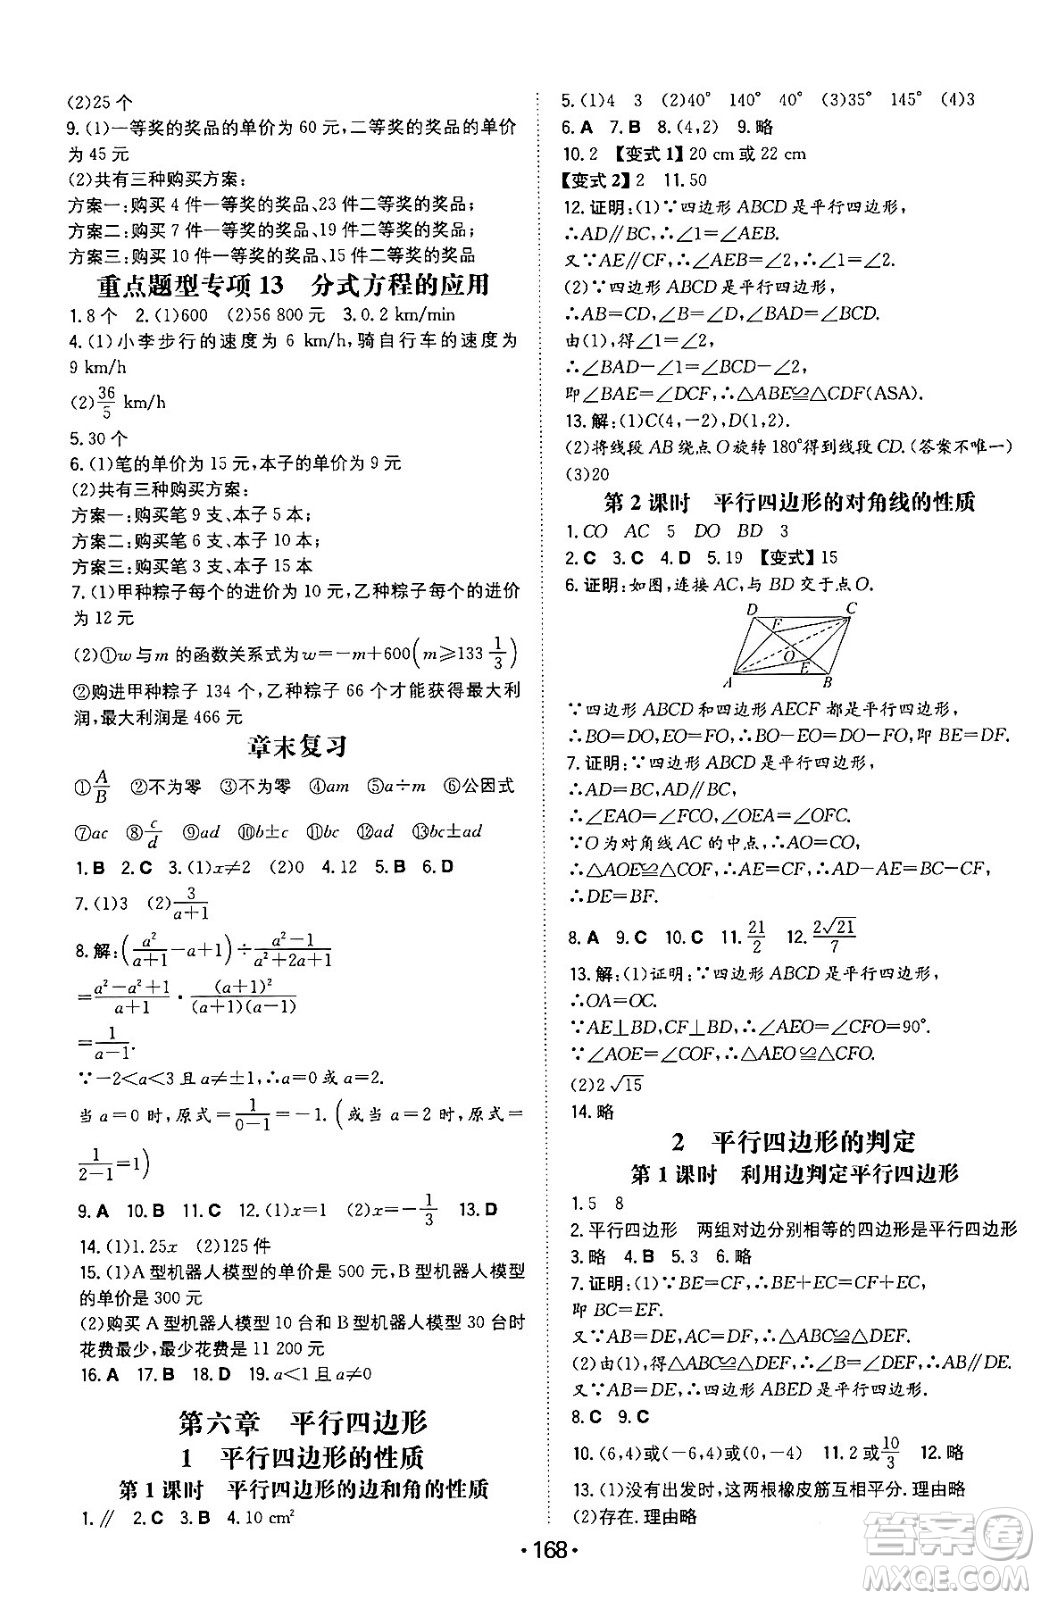 (2)25 个
9.(1)一等奖的奖品的单价为 60 元,二等奖的奖品的单价
为 45 元
(2)共有三种购买方案:
方案一:购买 4 件一等奖的奖品、23 件二等奖的奖品;
方案二:购买 7 件一等奖的奖品、19 件二等奖的奖品;
方案三:购买 10 件一等奖的奖品、15 件二等奖的奖品
重点题型专项 13 分式方程的应用
1.8 个 2.(1)600 (2)56 800 元 3.0.2 km/min
4.(1)小李步行的速度为 6 km/h,骑自行车的速度为
9 km/h
(2)36/5 km/h
5.30 个
6.(1)笔的单价为 15 元,本子的单价为 9 元
(2)共有三种购买方案:
方案一:购买笔 9 支、本子 5 本;
方案二:购买笔 6 支、本子 10 本;
方案三:购买笔 3 支、本子 15 本
7.(1)甲种粽子每个的进价为 10 元,乙种粽子每个的进价
为 12 元
(2)①w 与 m 的函数关系式为 w=-m+600(m≥133 1/3)
②购进甲种粽子 134 个,乙种粽子 66 个才能获得最大利
润,最大利润是 466 元
章末复习
①A/B ②不为零 ③不为零 ④am ⑤a÷m ⑥公因式
⑦ac ⑧c/d ⑨ad ⑩b±c ⑪ad ⑫ad ⑬bc±ad
1.B 2.C 3.(1)x≠2 (2)0 4.12 5.B 6.D
7.(1)3 (2)3/(a+1)
8.解:(a²/(a+1)-a+1)÷(a²-1)/(a²+2a+1)
=(a²-a²+1)/(a+1)·(a+1)²/((a+1)(a-1))
=1/(a-1).
∵-2<a<3 且 a≠±1,∴a=0 或 a=2.
当 a=0 时,原式=1/(0-1)=-1.(或当 a=2 时,原式=
1/(2-1)=1)
9.A 10.B 11.C 12.(1)x=1 (2)x=-1/3 13.D
14.(1)1.25x (2)125 件
15.(1)A 型机器人模型的单价是 500 元,B 型机器人模型
的单价是 300 元
(2)购买 A 型机器人模型 10 台和 B 型机器人模型 30 台时
花费最少,最少花费是 11 200 元
16.A 17.B 18.D 19.a<1 且 a≠0
第六章 平行四边形
1 平行四边形的性质
第 1 课时 平行四边形的边和角的性质
1.// 2.C 3.B 4.10 cm²
5.(1)4 3 (2)40° 140° 40° (3)35° 145° (4)3
6.A 7.B 8.(4,2) 9.略
10.2 【变式 1】20 cm 或 22 cm
【变式 2】2 11.50
12.证明:(1)∵四边形 ABCD 是平行四边形,
∴AD∥BC,∴∠1=∠AEB.
又∵AE∥CF,∴∠2=∠AEB,∴∠1=∠2.
(2)∵四边形 ABCD 是平行四边形,
∴AB=CD,∠B=∠D,∠BAD=∠BCD.
由(1),得∠1=∠2,
∴∠BAD-∠1=∠BCD-∠2,
即∠BAE=∠DCF,∴△ABE≌△CDF(ASA).
13.解:(1)C(4,-2),D(1,2).
(2)将线段 AB 绕点 O 旋转 180°得到线段 CD.(答案不唯一)
(3)20
第 2 课时 平行四边形的对角线的性质
1.CO AC 5 DO BD 3
2.C 3.C 4.D 5.19 【变式】15
6.证明:如图,连接 AC,与 BD 交于点 O.
D C
F
O
E
A B
∵四边形 ABCD 和四边形 AECF 都是平行四边形,
∴BO=DO,EO=FO,∴BO-EO=DO-FO,即 BE=DF.
7.证明:∵四边形 ABCD 是平行四边形,
∴AD=BC,AD∥BC,
∴∠EAO=∠FCO,∠OEA=∠OFC.
∵O 为对角线 AC 的中点,∴AO=CO,
∴△AOE≌△COF,∴AE=CF,∴AD-AE=BC-CF,
∴DE=BF.
8.A 9.C 10.C 11.21/2 12.2√21/7
13.解:(1)证明:∵四边形 ABCD 是平行四边形,
∴OA=OC.
∵AE⊥BD,CF⊥BD,∴∠AEO=∠CFO=90°.
∵∠AOE=∠COF,∴△AEO≌△CFO.
(2)2√15
14.略
2 平行四边形的判定
第 1 课时 利用边判定平行四边形
1.5 8
2.平行四边形 两组对边分别相等的四边形是平行四边形
3.略 4.B 5.3 6.略
7.证明:(1)∵BE=CF,∴BE+EC=CF+EC,
即 BC=EF.
又∵AB=DE,AC=DF,∴△ABC≌△DEF.
(2)由(1),得△ABC≌△DEF,∴∠B=∠DEF,∴AB∥DE.
又∵AB=DE,∴四边形 ABED 是平行四边形.
8.C 9.C
10.(6,4)或(-6,4)或(0,-4) 11.2 或 10/3 12.略
13.(1)没有出发时,这两根橡皮筋互相平分.理由略
(2)存在.理由略
·168·
答案卷
MXQE.COM